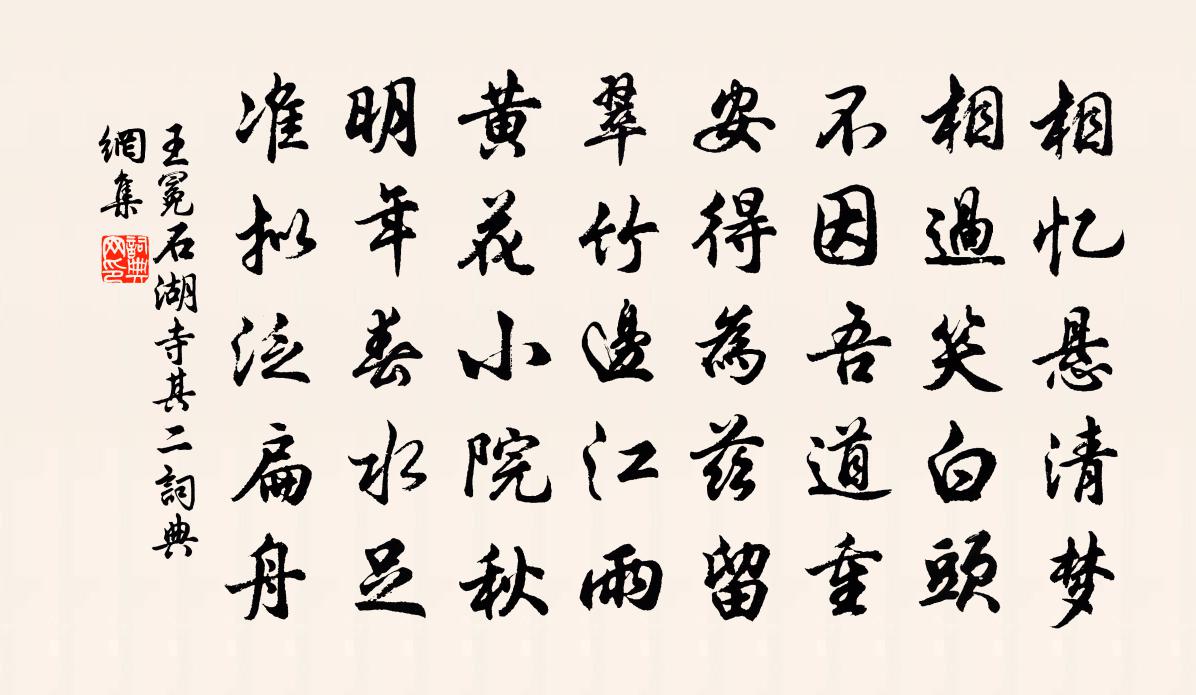 相忆悬清梦
相過笑白頭
不因吾道重
安得為茲留
翠竹邊江雨
黄花小院秋
明年春水足
准拟泛扁舟
王冕石湖寺其二詞典
網集
詞典
网印